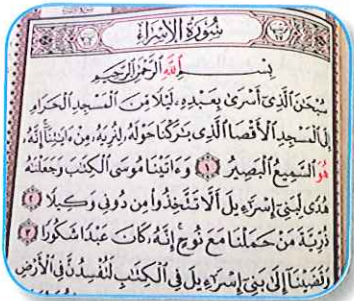 سُورَةُ الْإِسْرَاءِ
بِسْمِ اللَّهِ الرَّحْمَٰنِ الرَّحِيمِ
سُبْحَٰنَ الَّذِىٓ أَسْرَىٰ بِعَبْدِهِۦ لَيْلًا مِّنَ الْمَسْجِدِ الْحَرَامِ
إِلَى الْمَسْجِدِ الْأَقْصَا الَّذِى بَٰرَكْنَا حَوْلَهُۥ لِنُرِيَهُۥ مِنْ ءَايَٰتِنَآ إِنَّهُۥ
هُوَ السَّمِيعُ الْبَصِيرُ ١ وَءَاتَيْنَا مُوسَى الْكِتَٰبَ وَجَعَلْنَٰهُ
هُدًى لِّبَنِىٓ إِسْرَٰٓءِيلَ أَلَّا تَتَّخِذُوا۟ مِن دُونِى وَكِيلًا ٢
ذُرِّيَّةَ مَنْ حَمَلْنَا مَعَ نُوحٍ إِنَّهُۥ كَانَ عَبْدًا شَكُورًا ٣
وَقَضَيْنَآ إِلَىٰ بَنِىٓ إِسْرَٰٓءِيلَ فِى الْكِتَٰبِ لَتُفْسِدُنَّ فِى الْأَرْضِ